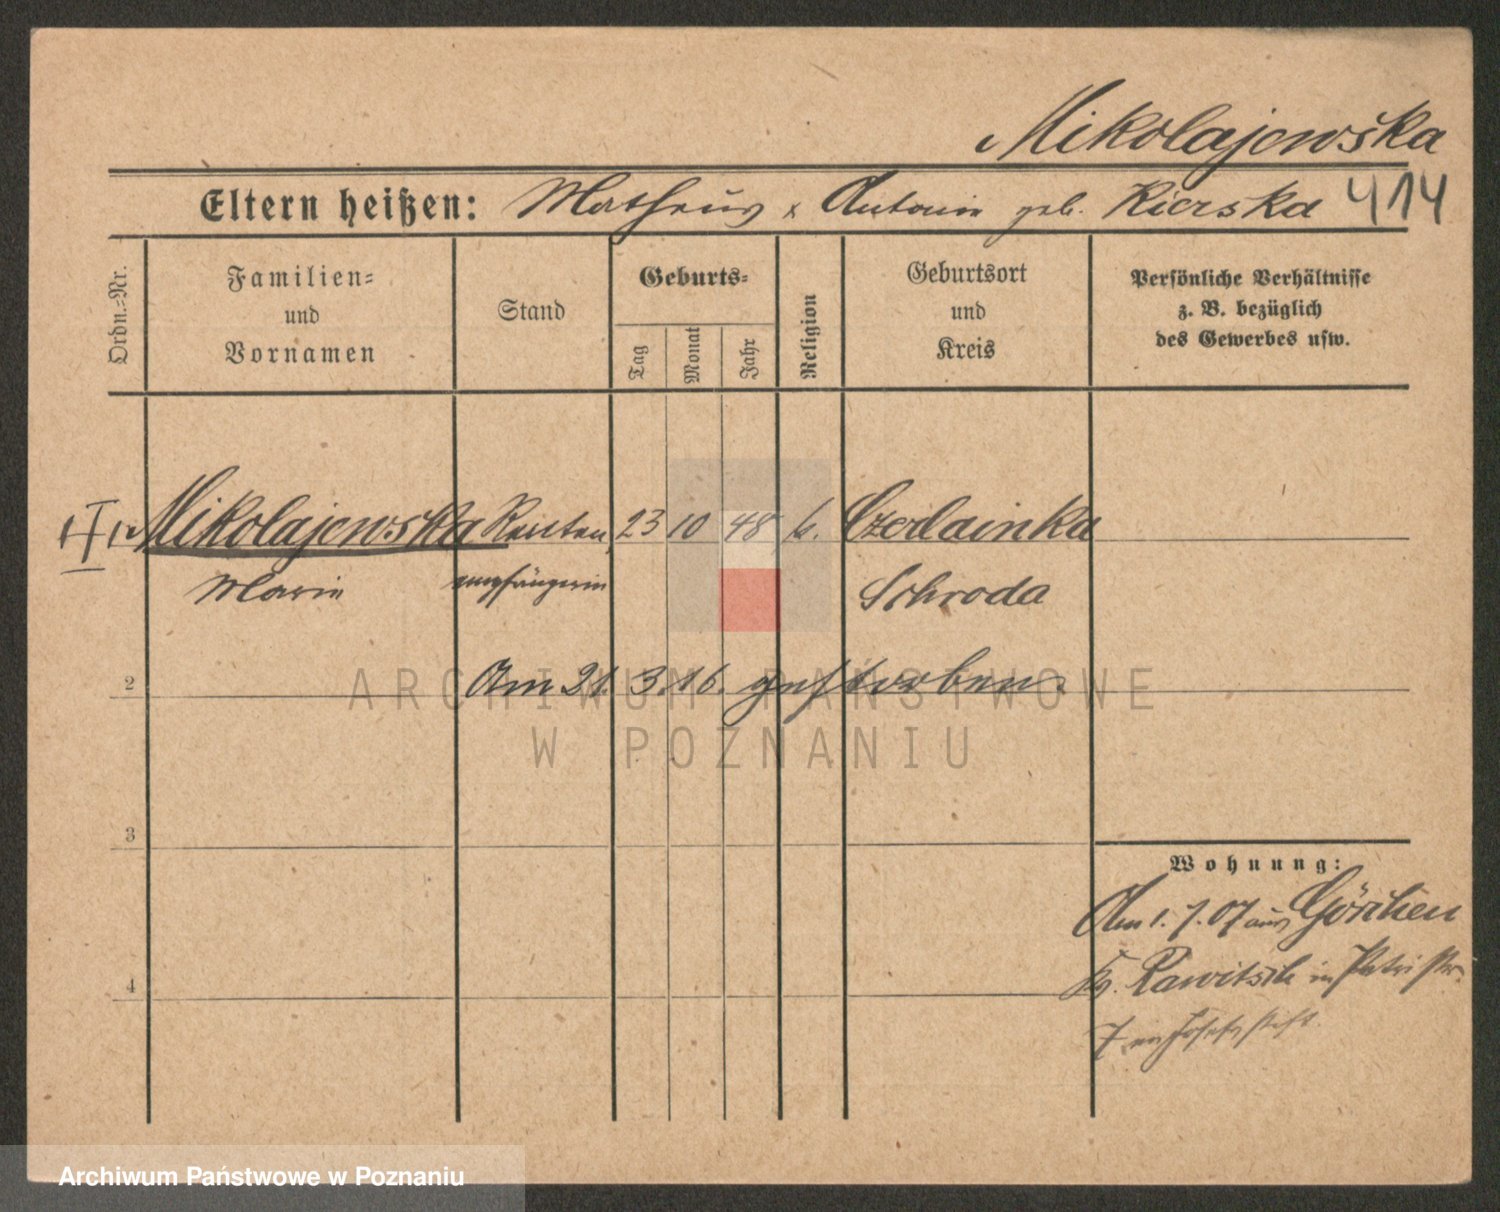 Mikolajewska
Eltern heißen: Matheus & Antonie geb. Kierska 414
Ordn.-Nr.
Familien-
und
Vornamen
Stand
Geburts-
Tag
Monat
Jahr
Religion
Geburtsort
und
Kreis
Persönliche Verhältnisse
z. B. bezüglich
des Gewerbes usw.
Mikolajewska Renten 23 10 48 k. Czerlainka
Marie empfängerin Schroda
2 Am 21. 3. 16. gestorben.
ARCHIWUM PAŃSTWOWE
W POZNANIU
3
Wohnung:
Am 1. 7. 07 aus Görchen
4 Kr. Rawitsch in Petristr.
7 im Josefstift.
Archiwum Państwowe w Poznaniu